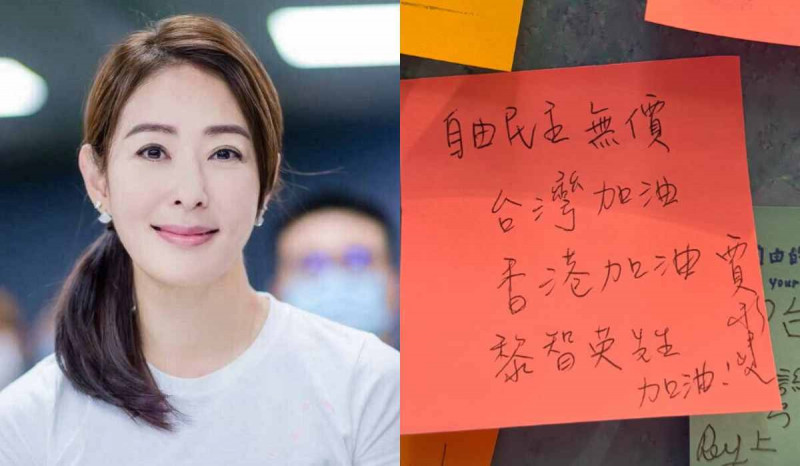 自由民主無價
台灣加油
香港加油
黎智英先生
加油!
賈永婕
由的
your
台
上